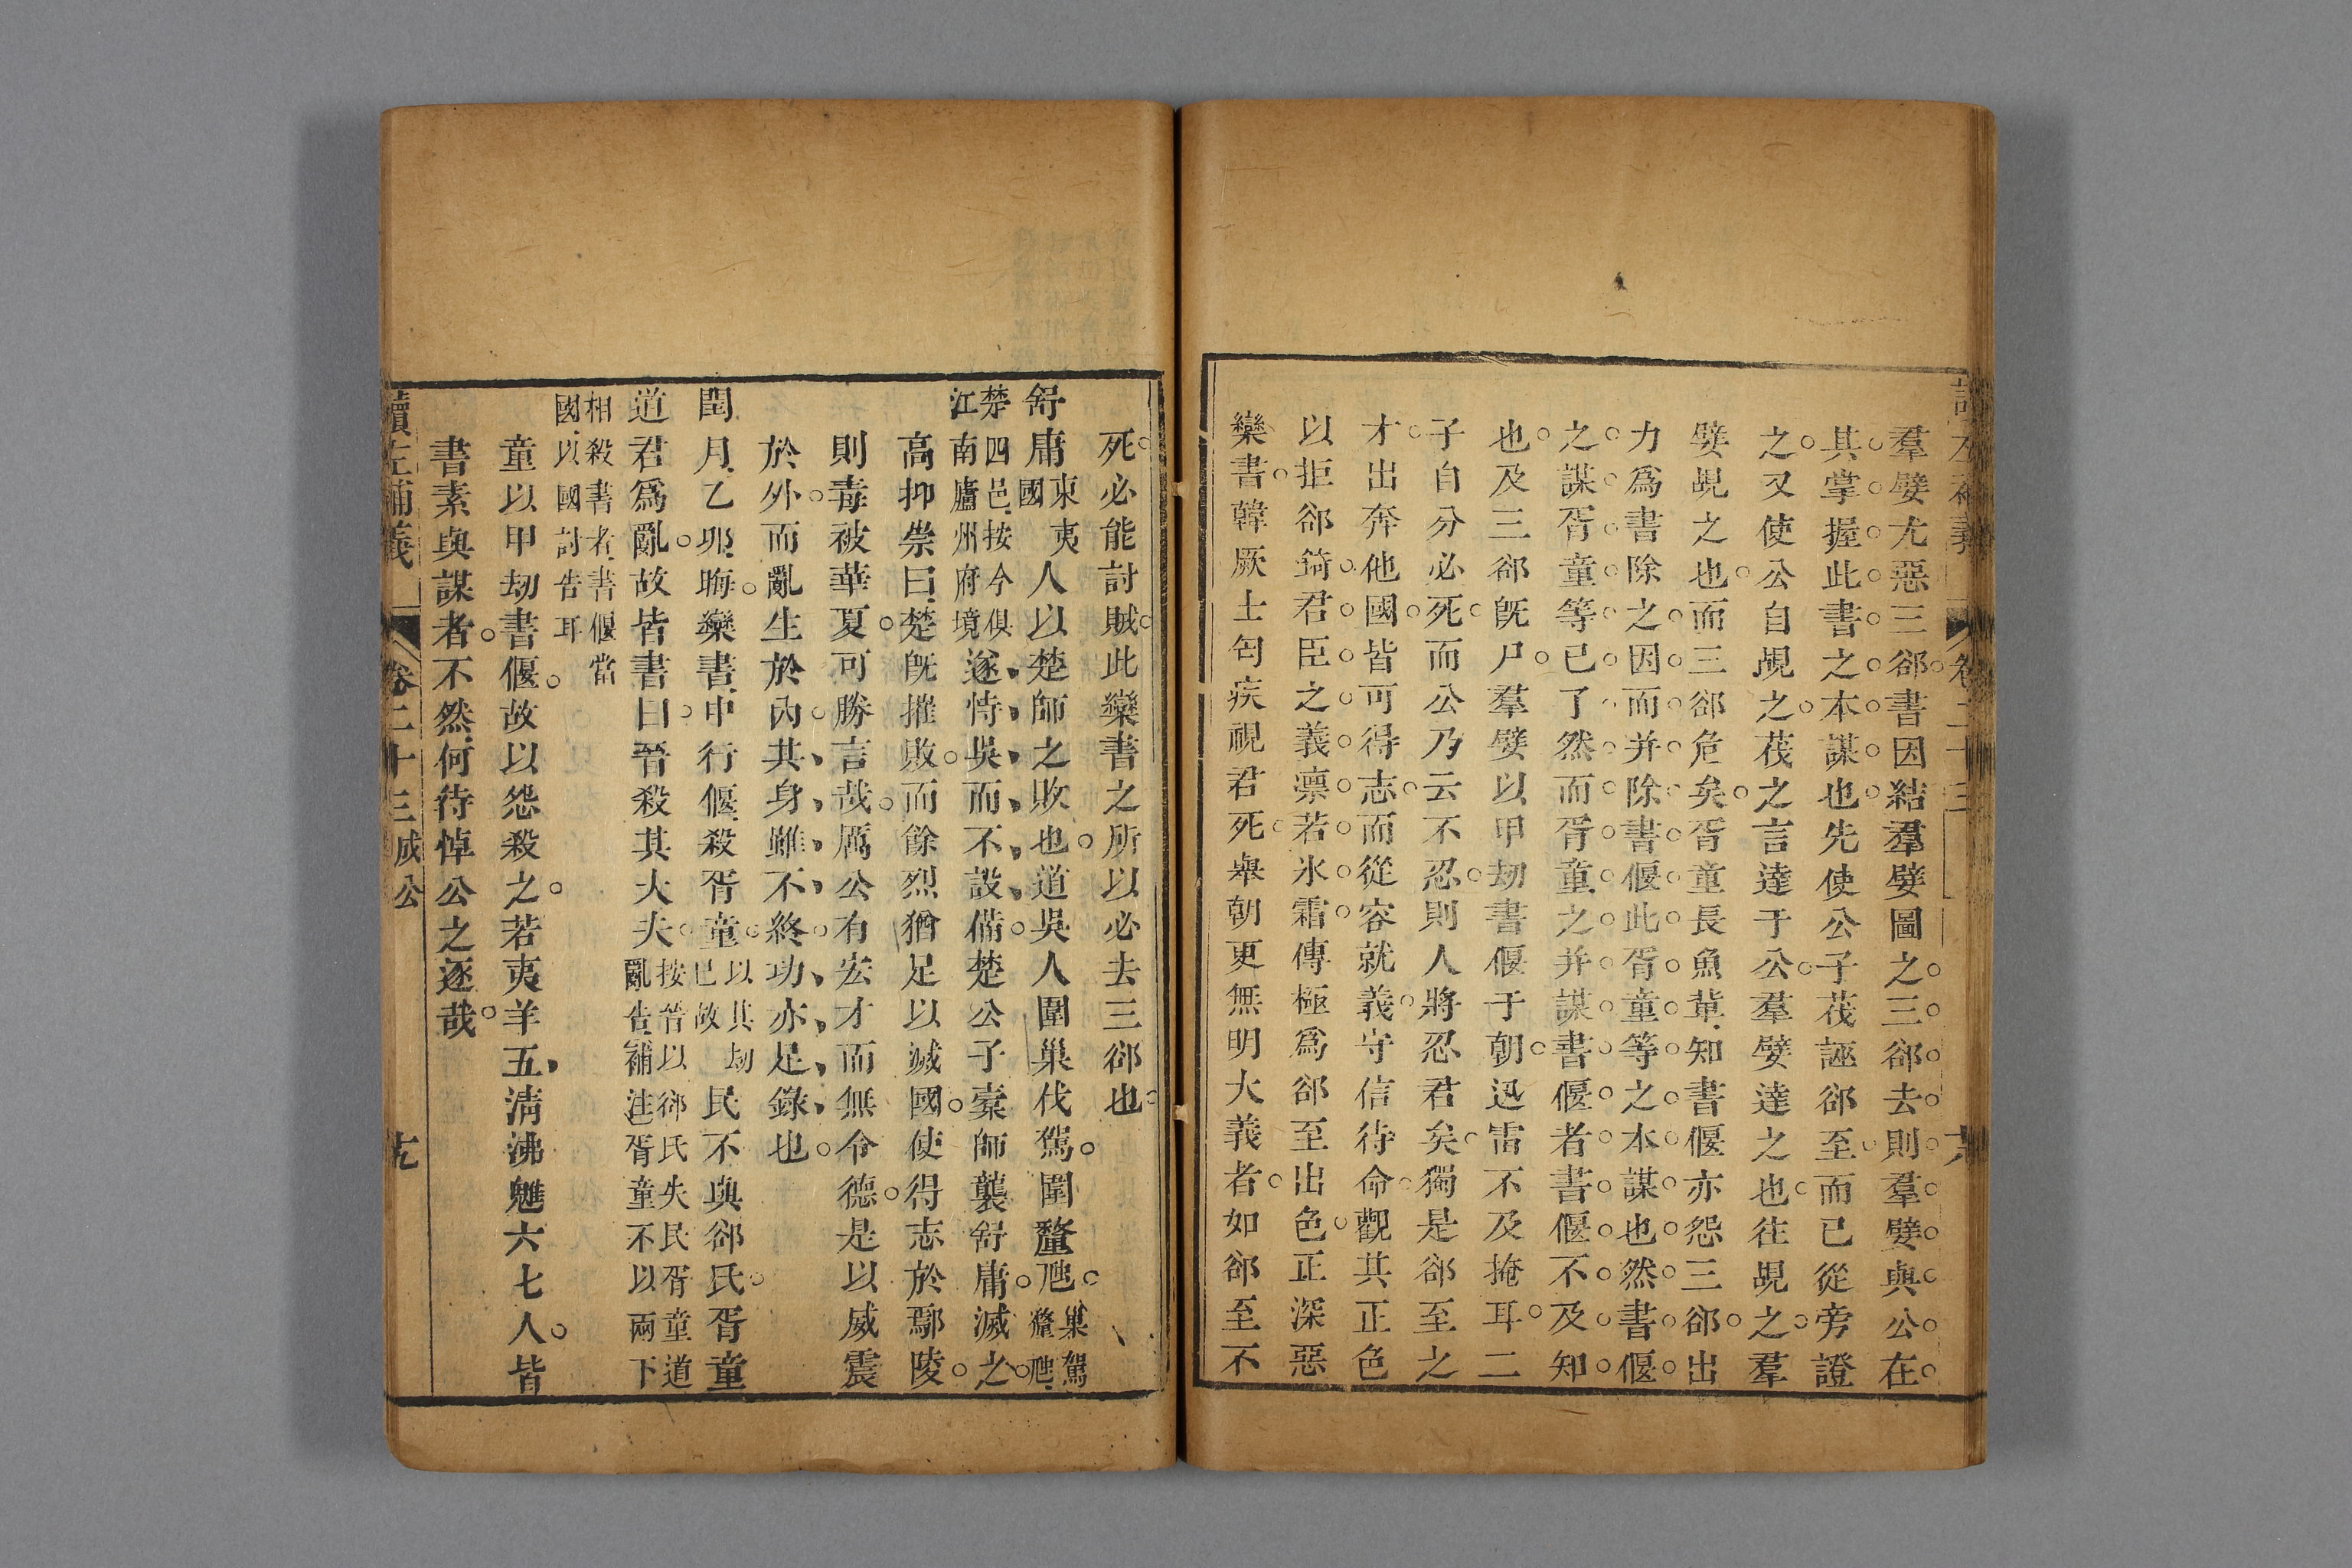 羣嬖尤惡三郤書因結羣嬖圖之三郤去則羣嬖與公在
其掌握此書之本謀也先使公子茷誣郤至而已從旁證
之又使公自覘之茷之言達于公羣嬖達之也往覘之羣
嬖覘之也而三郤危矣胥童長魚輩知書偃亦怨三郤出
力爲書除之因而并除書偃此胥童等之本謀也然書偃
之謀胥童等已了然而胥童之并謀書偃者書偃不及知
也及三郤旣尸羣嬖以甲劫書偃于朝迅雷不及掩耳二
子自分必死而公乃云不忍則人將忍君矣獨是郤至之
才出奔他國皆可得志而從容就義守信待命觀其正色
以拒郤錡君臣之義凛若氷霜傳極爲郤至出色正深惡
欒書韓厥士匄疾視君死舉朝更無明大義者如郤至不
死必能討賊此欒書之所以必去三郤也
舒庸東夷國人以楚師之敗也道吳人圍巢伐駕圍釐虺巢駕釐虺
楚四邑按今俱江南廬州府境遂恃吳而不設備楚公子櫜師襲舒庸滅之
高抑崇曰楚旣摧敗而餘烈猶足以滅國使得志於鄢陵
則毒被華夏可勝言哉厲公有宏才而無令德是以威震
於外而亂生於內其身雖不終功亦足錄也
閏月乙卯晦欒書中行偃殺胥童以其劫已故民不與郤氏胥童
道君爲亂故皆書曰晉殺其大夫按晉以郤氏失民胥童道亂告補注胥童不以兩下
相殺書者書偃當國以國討告耳
童以甲劫書偃故以怨殺之若夷羊五淸沸魋六七人皆
書素與謀者不然何待悼公之逐哉
讀左補義 卷二十三 成公